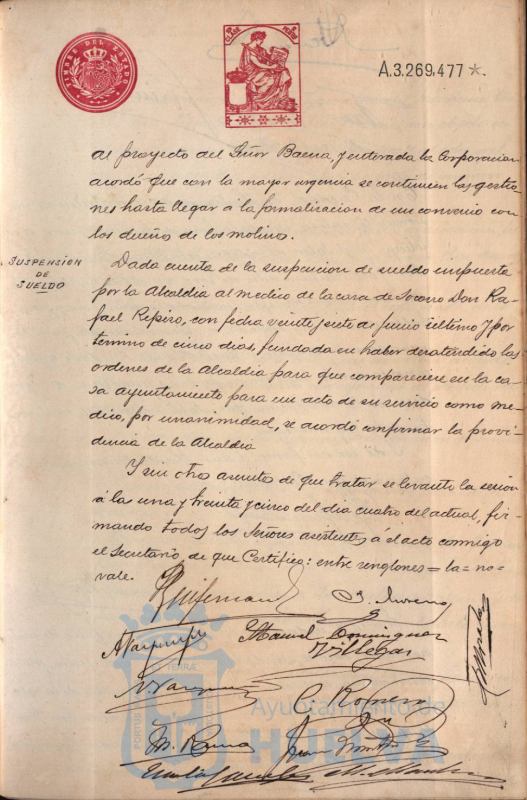 TIMBRE DEL ESTADO
A.3.269.477
al proyecto del Señor Baena, y enterada la Corporacion
acordó que con la mayor urgencia se continuen las gestio-
nes hasta llegar á la formalizacion de un convenio con
los dueños de los molinos.
SUSPENSION
DE
SUELDO
Dada cuenta de la suspencion de sueldo impuesta
por la Alcaldia al medico de la casa de Socorro Don Ra-
fael Repiso, con fecha veinte y siete de Junio último y por
termino de cinco dias, fundada en haber desatendido las
ordenes de la Alcaldia para que compareciere en la ca-
sa Ayuntamiento para un acto de su servicio como me-
dico, por unanimidad, se acordó confirmar la provi-
dencia de la Alcaldia
Y sin otro asunto de que tratar se levantó la sesion
á la una y treinta y cinco del dia cuatro del actual, fir-
mando todos los Señores asistentes á el acto conmigo
el Secretario, de que Certifico: entre renglones = la = no-
vale.
J. Moreno
Manuel Dominguez
Villegas
Ayuntamiento de
HUELVA